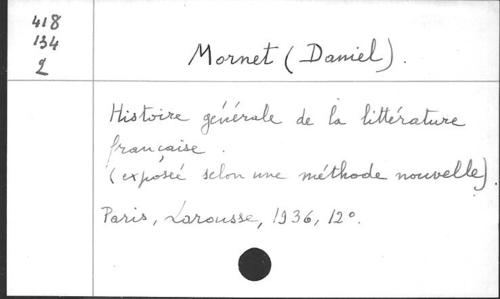 418
134
2
Mornet (Daniel).
Histoire générale de la littérature
française.
(exposée selon une méthode nouvelle).
Paris, Larousse, 1936, 12°.